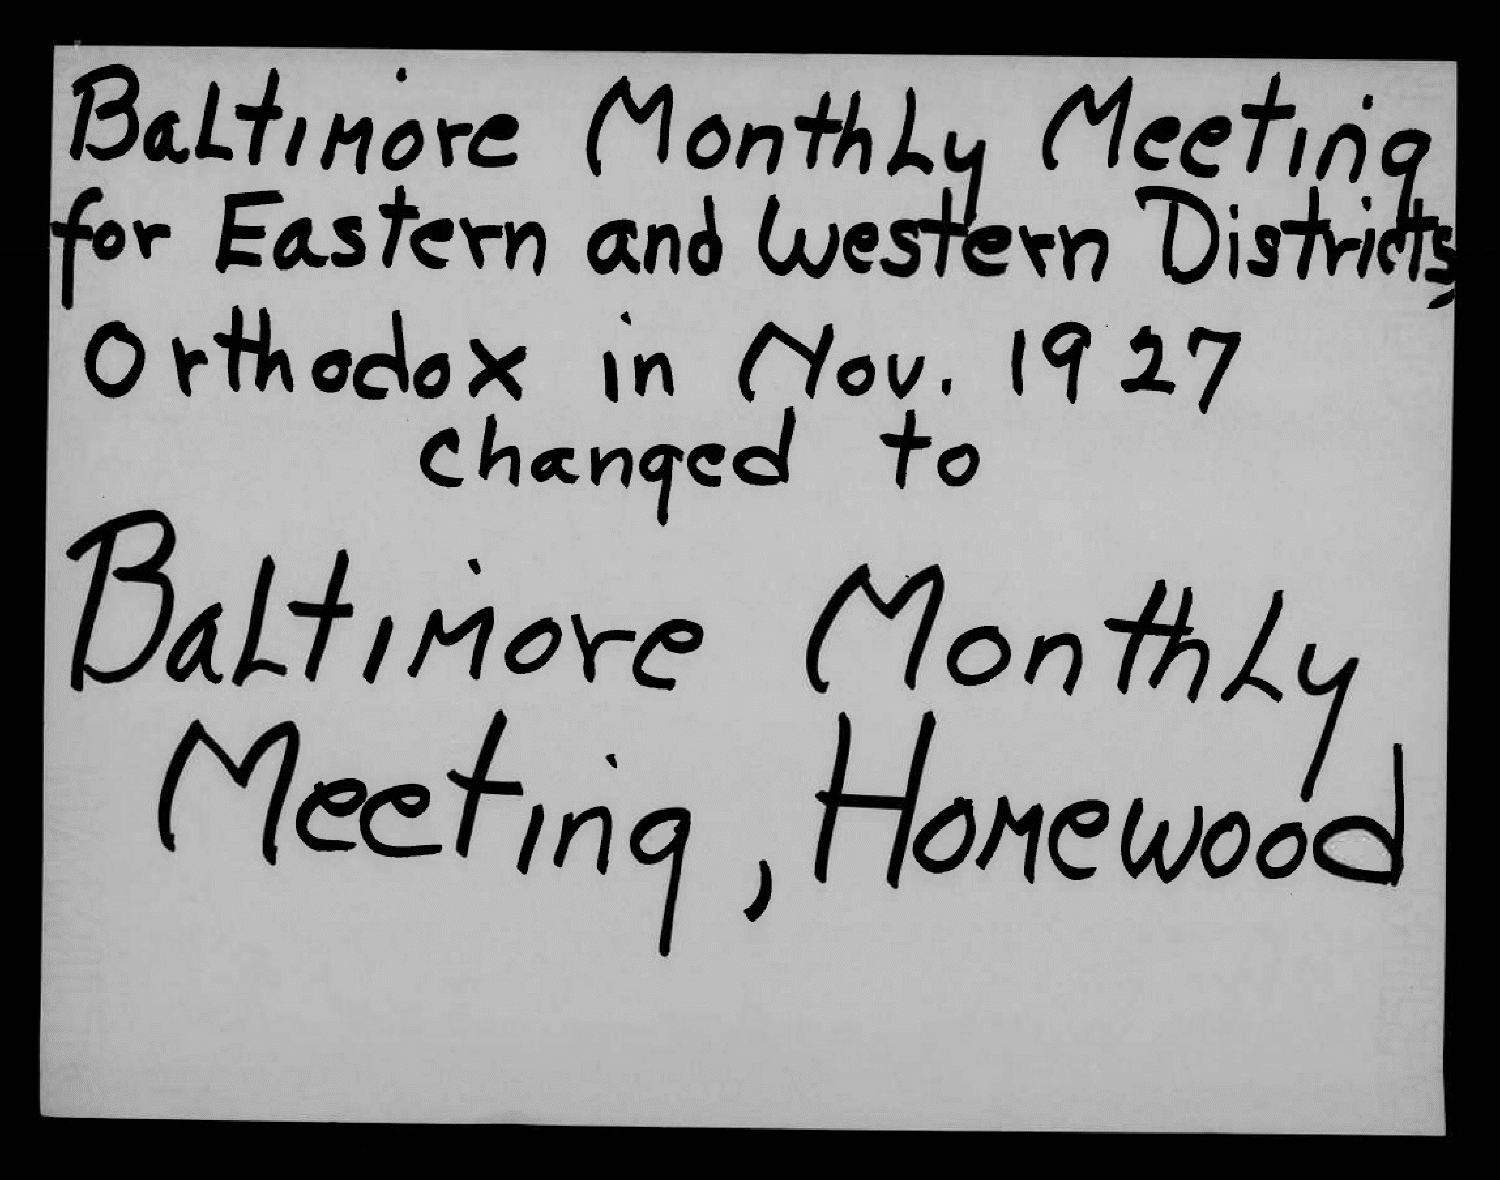 Baltimore Monthly Meeting
for Eastern and Western Districts,
Orthodox in Nov. 1927
changed to
Baltimore Monthly
Meeting, Homewood